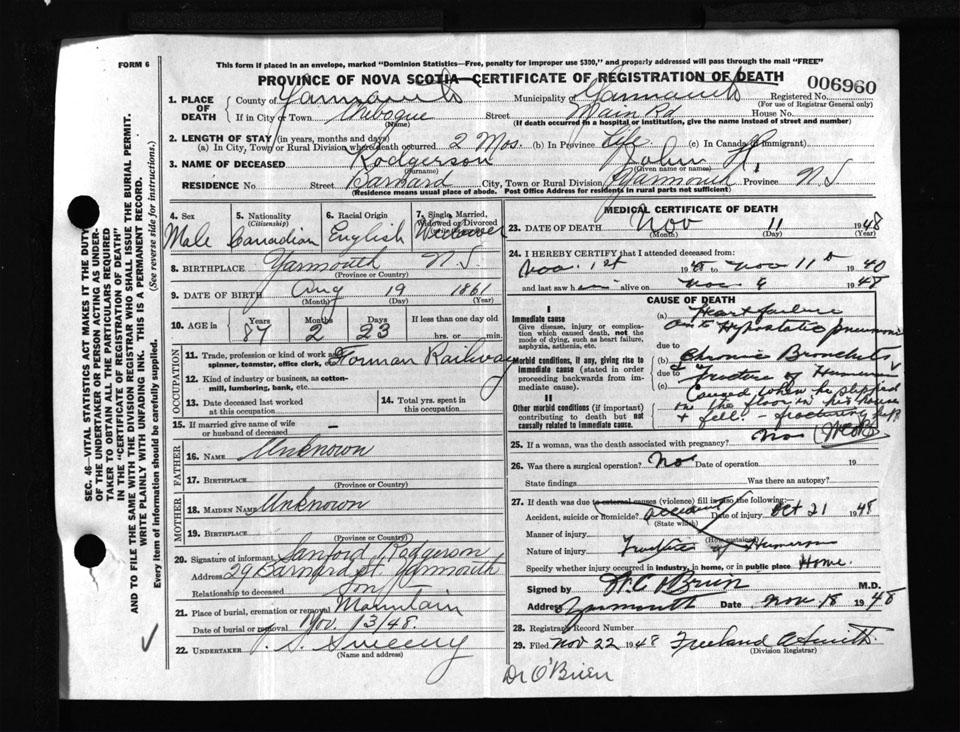 FORM 6
This form if placed in an envelope, marked "Dominion Statistics—Free, penalty for improper use $300," and properly addressed will pass through the mail "FREE"
PROVINCE OF NOVA SCOTIA—CERTIFICATE OF REGISTRATION OF DEATH
006960
1. PLACE OF DEATH
County of Yarmouth Municipality Yarmouth Registered No.
(For use of Registrar General only)
If in City or Town Arboque Street Main Rd House No.
(If death occurred in a hospital or institution, give the name instead of street and number)
2. LENGTH OF STAY (in years, months and days)
(a) In City, Town or Rural Division where death occurred 2 Mos. (b) In Province Life (c) In Canada (if immigrant)
3. NAME OF DECEASED Rodgerson John H
(Surname) (Given name or names)
RESIDENCE No. Street Barnard City, Town or Rural Division Yarmouth Province N S
(Residence means usual place of abode. Post Office Address for residents in rural parts not sufficient)
4. Sex Male
5. Nationality (Citizenship) Canadian
6. Racial Origin English
7. Single, Married, Widowed or Divorced
8. BIRTHPLACE Yarmouth N S
(Province or County)
9. DATE OF BIRTH Aug 19 1861
(Month) (Day) (Year)
10. AGE in Years Months Days If less than one day old
87 2 23 hrs. or min.
OCCUPATION
11. Trade, profession or kind of work as spinner, teamster, office clerk, Forman Railway
12. Kind of industry or business, as cotton-mill, lumbering, bank, etc.
13. Date deceased last worked at this occupation
14. Total yrs. spent in this occupation
15. If married give name of wife or husband of deceased —
FATHER
16. NAME Unknown
17. BIRTHPLACE
(Province or County)
MOTHER
18. MAIDEN NAME Unknown
19. BIRTHPLACE
(Province or County)
20. Signature of informant Sanford Rodgerson
Address 29 Barnard St. Yarmouth
Relationship to deceased Son
21. Place of burial, cremation or removal Mountain
Date of burial or removal Nov. 13/48.
22. UNDERTAKER Sweeny
(Name and address)
MEDICAL CERTIFICATE OF DEATH
23. DATE OF DEATH Nov 11 1948
(Month) (Day) (Year)
24. I HEREBY CERTIFY that I attended deceased from:
Nov. 1st 19 to Nov 11th 1940
and last saw him alive on Nov 1948
CAUSE OF DEATH
I
Immediate cause
Give disease, injury or complication which caused death, not the mode of dying, such as heart failure, asphyxia, asthenia, etc.
(a) Heart failure
Hypostatic pneumonia
due to
Morbid conditions, if any, giving rise to immediate cause (stated in order proceeding backwards from immediate cause).
(b) Chronic Bronchitis
due to Fracture of Humerus
(c) Caused when he slipped
on the floor in his house
& fell - fracturing left
II
Other morbid conditions (if important) contributing to death but not causally related to immediate cause.
25. If a woman, was the death associated with pregnancy? No
26. Was there a surgical operation? No Date of operation 19
State findings Was there an autopsy?
27. If death was due to external causes (violence) fill in also the following:
Accident, suicide or homicide? accident Date of injury Oct 21 1948
(State which)
Manner of injury
(How sustained)
Nature of injury Fracture of Humerus
Specify whether injury occurred in industry, in home, or in public place Home.
Signed by W. C. O'Brien M.D.
Address Yarmouth Date Nov 18 1948
28. Registrar's Record Number
29. Filed Nov 22 1948 Freeland A Smith.
(Division Registrar)
Dr O'Brien
SEC. 46—VITAL STATISTICS ACT MAKES IT THE DUTY
OF THE UNDERTAKER OR PERSON ACTING AS UNDER-
TAKER TO OBTAIN ALL THE PARTICULARS REQUIRED
IN THE "CERTIFICATE OF REGISTRATION OF DEATH"
AND TO FILE THE SAME WITH THE DIVISION REGISTRAR WHO SHALL ISSUE THE BURIAL PERMIT.
WRITE PLAINLY WITH UNFADING INK. THIS IS A PERMANENT RECORD.
Every item of information should be carefully supplied. (See reverse side for instructions.)